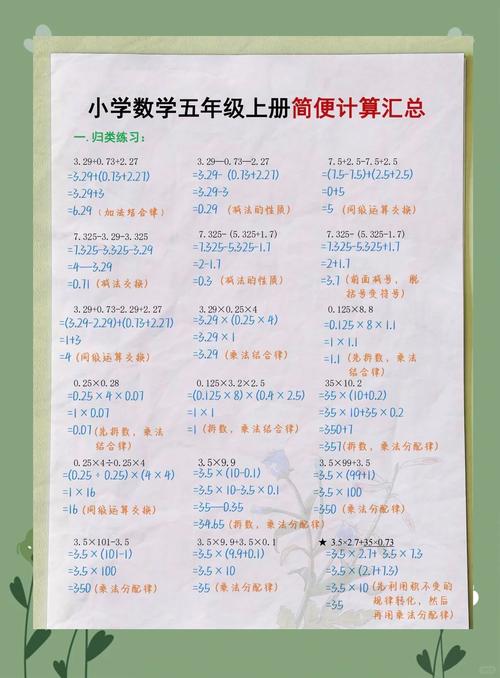 小学数学五年级上册简便计算汇总
一.归类练习：
3.29+0.73+2.27
=3.29+(0.73+2.27)
=3.29+3
=6.29 (加法结合律)
3.29—0.73—2.27
=3.29-(0.73+2.27)
=3.29-3
=0.29 (减法的性质)
7.5+2.5-7.5+2.5
=(7.5-7.5)+(2.5+2.5)
=0+5
=5 (同级运算交换)
7.325-3.29-3.325
=7.325-3.325-3.29
=4—3.29
=0.71 (减法交换)
7.325-(5.325+1.7)
=7.325-5.325-1.7
=2-1.7
=0.3 (减法的性质)
7.325-(5.325-1.7)
=7.325-5.325+1.7
=2+1.7
=3.7 (前面减号，脱
括号变符号)
3.29+0.73-2.29+2.27
=(3.29-2.29)+(0.73+2.27)
=1+3
=4 (同级运算交换)
3.29×0.25×4
=3.29×(0.25×4)
=3.29×1
=3.29 (乘法结合律)
0.125×8.8
=0.125×8×1.1
=1×1.1
=1.1 (先拆数，乘法
结合律)
0.25×0.28
=0.25×4×0.07
=1×0.07
=0.07(先拆数，乘法
结合律)
0.125×3.2×2.5
=(0.125×8)×(0.4×2.5)
=1×1
=1 (拆数，乘法结合律)
35×10.2
=35×(10+0.2)
=35×10+35×0.2
=350+7
=357(拆数，乘法分配律)
0.25×4÷0.25×4
=(0.25÷0.25)×(4×4)
=1×16
=16 (同级运算交换)
3.5×9.9
=3.5×(10-0.1)
=3.5×10-3.5×0.1
=35—0.35
=34.65 (拆数，乘法分配律)
3.5×99+3.5
=3.5×(99+1)
=3.5×100
=350 (乘法分配律)
3.5×101-3.5
=3.5×(101-1)
=3.5×100
=350 (乘法分配律)
3.5×9.9+3.5×0.1
=3.5×(9.9+0.1)
=3.5×10
=35 (乘法分配律)
★ 3.5×2.7+35×0.73
=3.5×2.7+3.5×7.3
=3.5×(2.7+7.3)
=3.5×10 (先利用积不变的
=35 规律转化，然后
再用乘法分配律)